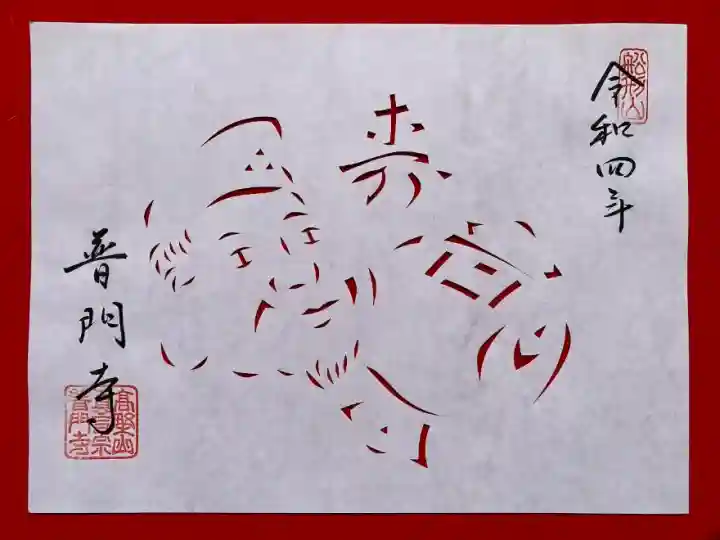 令和四年
寿
普門寺
高野山
真言宗
普門寺